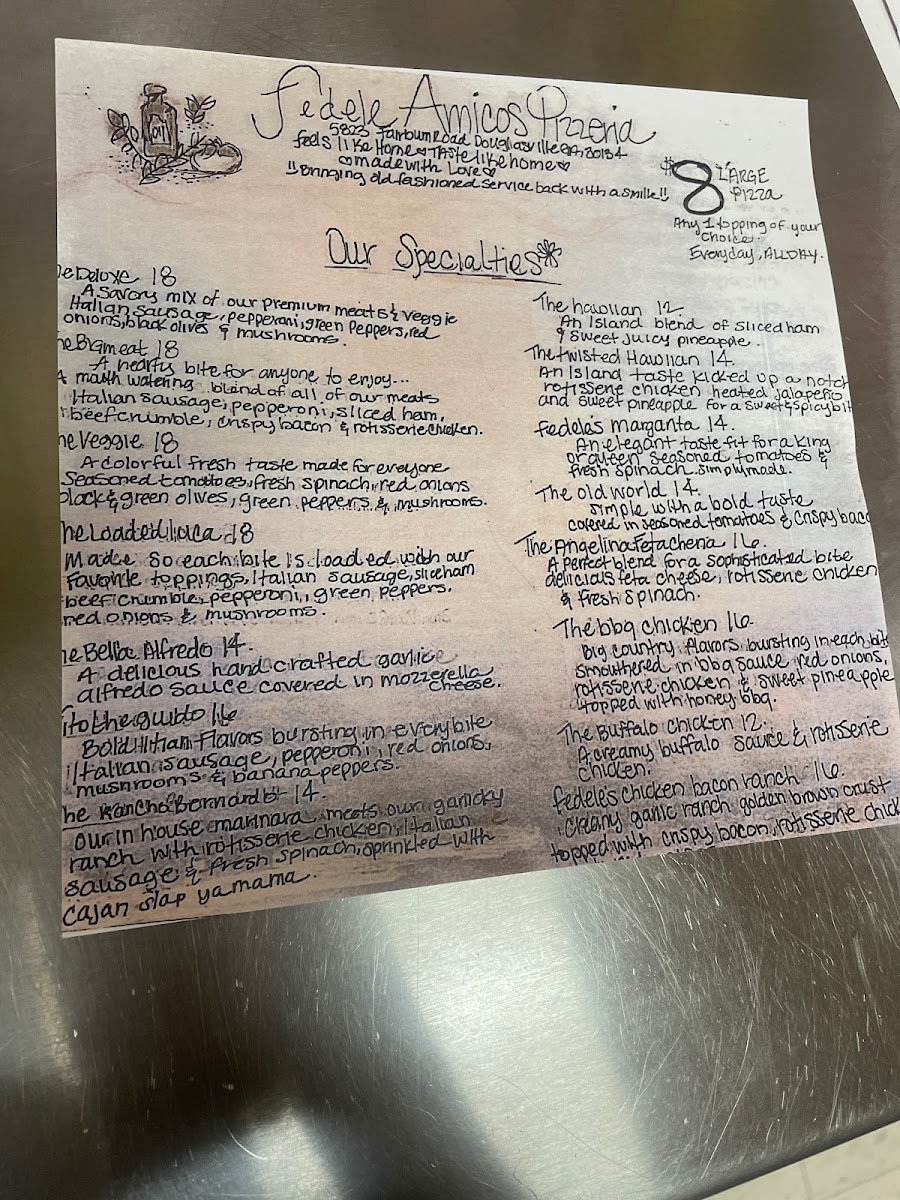 Oil
Fedele Amicos Pizzeria
5823 Fairburn Road Douglasville GA, 30134
feels like Home ♡ TAste like home ♡
♡ made with Love ♡
!! Bringing old fashioned service back with a smile!!
$8 LARGE
PIZZA
Any 1 topping of your
choice.
Everyday, ALLDAY.
Our Specialties
he Deluxe 18
A savory mix of our premium meats & veggie
Italian sausage, pepperoni, green peppers, red
onions, black olives & mushrooms.
he Bigmeat 18
A hearty bite for anyone to enjoy...
A mouth watering blend of all of our meats
Italian sausage, pepperoni, sliced ham,
beef crumble, crispy bacon & rotisserie chicken.
he Veggie 18
A colorful fresh taste made for everyone
Seasoned tomatoes, fresh spinach, red onions
black & green olives, green peppers & mushrooms.
he Loaded 18
Made so each bite is loaded with our
favorite toppings, Italian sausage, slice ham
beef crumble, pepperoni, green peppers.
red onions & mushrooms.
he Bella Alfredo 14
A delicious hand crafted garlic
alfredo sauce covered in mozzerella
cheese.
ito the guido 16
Bold Itlian flavors bursting in every bite
Italian sausage, pepperoni, red onions,
mushrooms & banana peppers.
he Rancho Bernardo 14.
our in house marinara meets our garlicky
ranch with rotisserie chicken, Italian
sausage & fresh spinach, sprinkled with
cajan slap ya mama.
The hawiian 12
An Island blend of sliced ham
& sweet juicy pineapple.
The twisted Hawiian 14.
An Island taste kicked up a notch
rotisserie chicken heated jalapeño
and sweet pineapple for a sweet & spicy bit
fedele's margarita 14.
An elegant taste fit for a king
or queen seasoned tomatoes &
fresh spinach simply made.
The old world 14.
simple with a bold taste
covered in seasoned tomatoes & crispy baco
The Angelina Fetacheria 16.
A Perfect blend for a sophisticated bite
delicious feta cheese, rotisserie chicken
& fresh spinach.
The bbq chicken 16.
big country flavors bursting in each bite
smouthered in bbq sauce red onions,
rotisserie chicken & sweet pineapple
topped with honey bbq.
The Buffalo chicken 12.
A creamy buffalo sauce & rotisserie
chicken.
fedele's chicken bacon ranch 16.
creamy garlic ranch golden brown crust
topped with crispy bacon, rotisserie chick